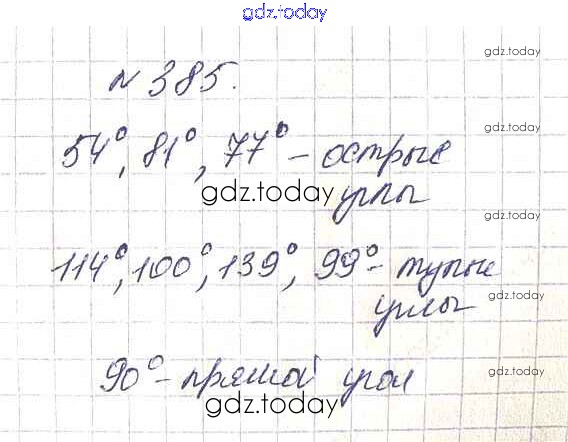 gdz.today
gdz.today
№ 385.
gdz.today
54°, 81°, 77° – острые
gdz.today
углы
gdz.today
114°, 100°, 139°, 99° – тупые
углы
gdz.today
90° – прямой угол
gdz.today
gdz.today